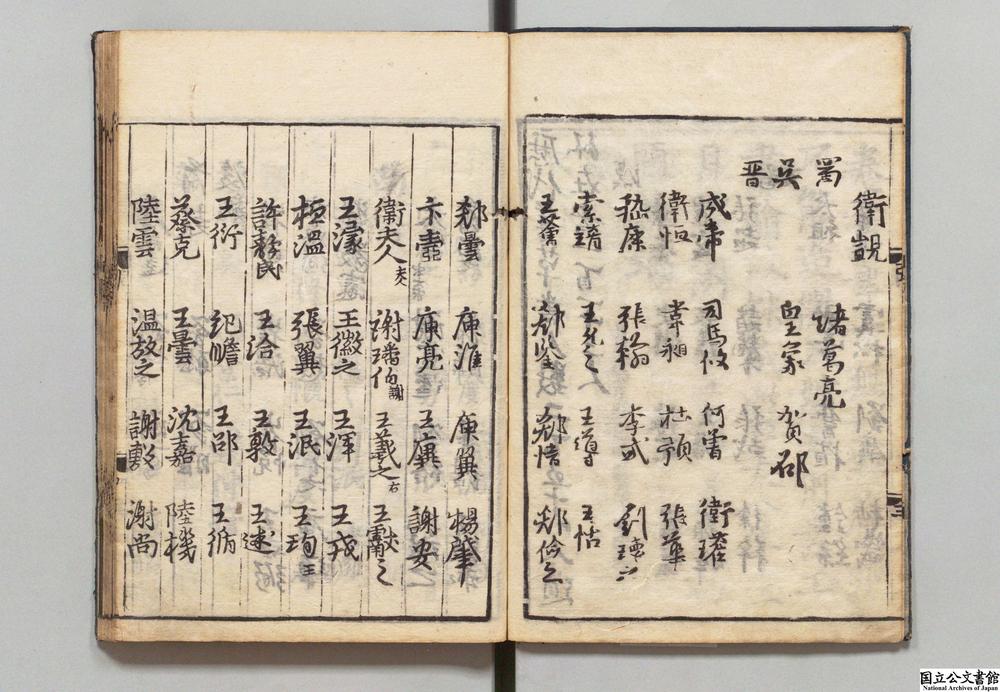 衛覬
蜀 諸葛亮
吳 皇象 賀邵
晋
成帝 司馬攸 何曾 衛瓘
衛恒 韋昶 杜預 張華
嵇康 張翰 李式 劉瓌之
索靖 王允之 王導 王恬
王薈 郄鑒 郄愔 郄儉之
郄曇 庾準 庾翼 楊肇
卞壼 庾亮 王廙 謝安
衛夫人 謝璠伯 王羲之 王獻之
王濛 王徽之 王渾 王戎
桓溫 張翼 王珉 王珣
許靜民 王洽 王敦 王述
王衍 紀瞻 王邵 王循
蔡克 王曇 沈嘉 陸機
陸雲 温放之 謝敷 謝尚
国立公文書館
National Archives of Japan